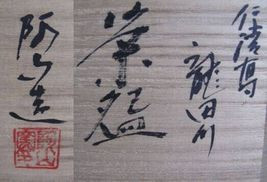 仁清寫
龍田川
茶碗
阿山造